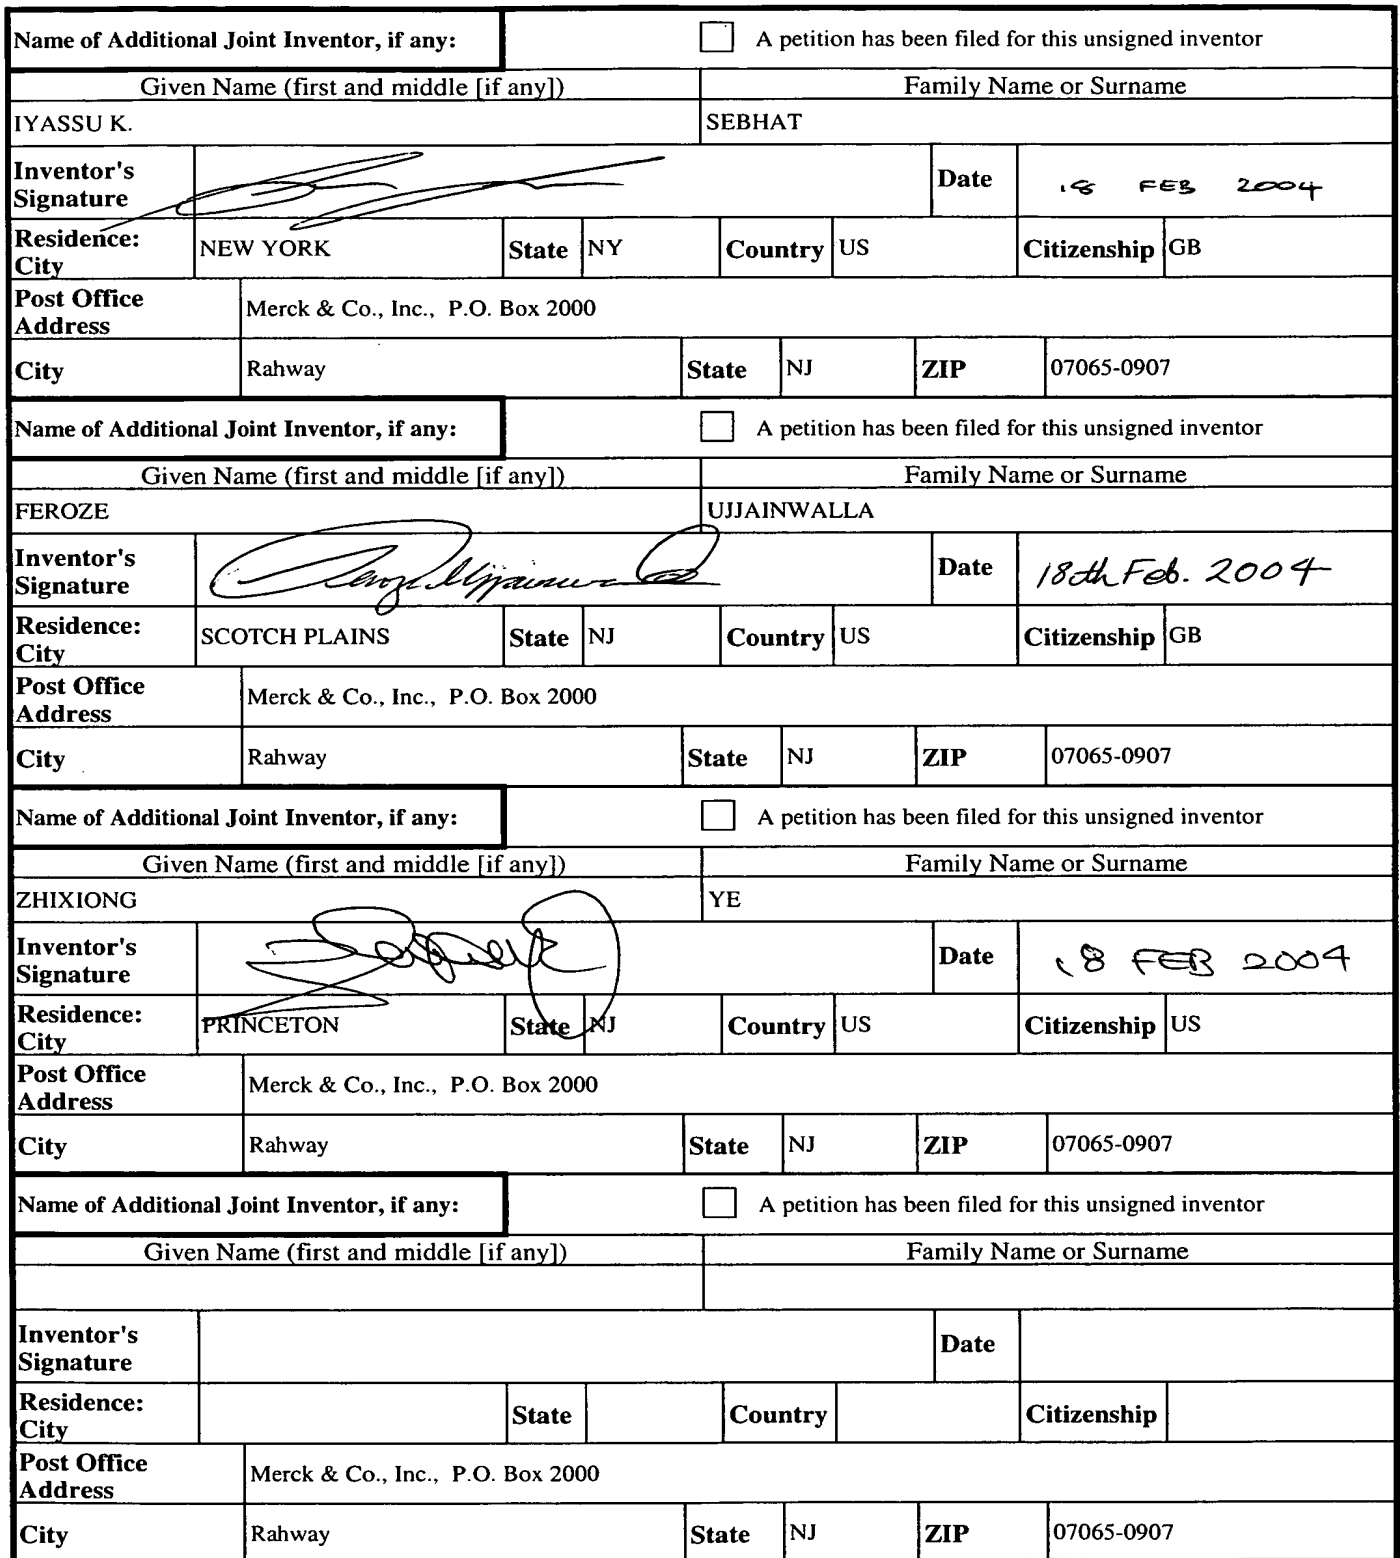 Name of Additional Joint Inventor, if any: A petition has been filed for this unsigned inventor
Given Name (first and middle [if any]) Family Name or Surname
IYASSU K. SEBHAT
Inventor's Signature Date 18 FEB 2004
Residence: City NEW YORK State NY Country US Citizenship GB
Post Office Address Merck & Co., Inc., P.O. Box 2000
City Rahway State NJ ZIP 07065-0907
Name of Additional Joint Inventor, if any: A petition has been filed for this unsigned inventor
Given Name (first and middle [if any]) Family Name or Surname
FEROZE UJJAINWALLA
Inventor's Signature Feroze Ujjainwalla Date 18th Feb. 2004
Residence: City SCOTCH PLAINS State NJ Country US Citizenship GB
Post Office Address Merck & Co., Inc., P.O. Box 2000
City Rahway State NJ ZIP 07065-0907
Name of Additional Joint Inventor, if any: A petition has been filed for this unsigned inventor
Given Name (first and middle [if any]) Family Name or Surname
ZHIXIONG YE
Inventor's Signature Date 18 FEB 2004
Residence: City PRINCETON State NJ Country US Citizenship US
Post Office Address Merck & Co., Inc., P.O. Box 2000
City Rahway State NJ ZIP 07065-0907
Name of Additional Joint Inventor, if any: A petition has been filed for this unsigned inventor
Given Name (first and middle [if any]) Family Name or Surname
Inventor's Signature Date
Residence: City State Country Citizenship
Post Office Address Merck & Co., Inc., P.O. Box 2000
City Rahway State NJ ZIP 07065-0907